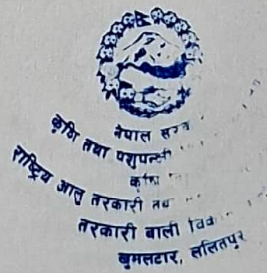 नेपाल
कृषि तथा पशुपन्छी
राष्ट्रिय आलु तरकारी तथा
तरकारी बाली
खुमलटार, ललितपुर